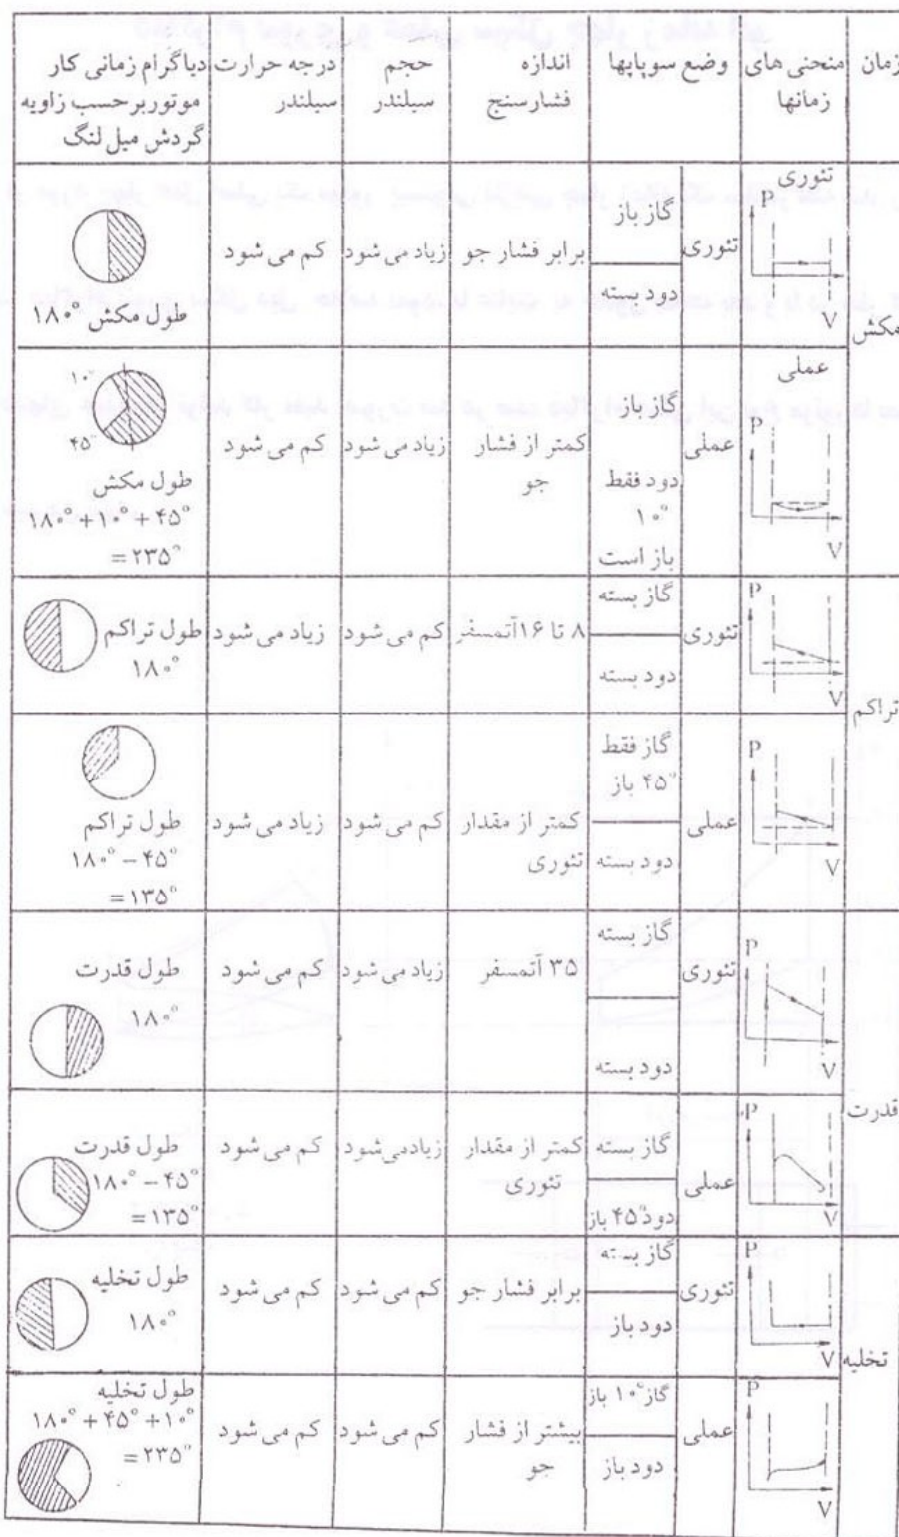 زمان
منحنی های
زمانها
وضع سوپاپها
اندازه
فشارسنج
حجم
سیلندر
درجه حرارت
سیلندر
دیاگرام زمانی کار
موتور برحسب زاویه
گردش میل لنگ
مکش
تئوری
P
V
تئوری
گاز باز
دود بسته
برابر فشار جو
زیاد می شود
کم می شود
طول مکش ۱۸۰°
عملی
P
V
عملی
گاز باز
دود فقط
۱۰°
باز است
کمتر از فشار
جو
زیاد می شود
کم می شود
۱۰°
۴۵°
طول مکش
۱۸۰°+۱۰°+۴۵°
=۲۳۵°
تراکم
P
V
تئوری
گاز بسته
دود بسته
۸ تا ۱۶ آتمسفر
کم می شود
زیاد می شود
طول تراکم
۱۸۰°
P
V
عملی
گاز فقط
۴۵° باز
دود بسته
کمتر از مقدار
تئوری
کم می شود
زیاد می شود
طول تراکم
۱۸۰°-۴۵°
=۱۳۵°
قدرت
P
V
تئوری
گاز بسته
دود بسته
۳۵ آتمسفر
زیاد می شود
کم می شود
طول قدرت
۱۸۰°
P
V
عملی
گاز بسته
دود ۴۵° باز
کمتر از مقدار
تئوری
زیاد می شود
کم می شود
طول قدرت
۱۸۰°-۴۵°
=۱۳۵°
تخلیه
P
V
تئوری
گاز بسته
دود باز
برابر فشار جو
کم می شود
کم می شود
طول تخلیه
۱۸۰°
P
V
عملی
گاز ۱۰° باز
دود باز
بیشتر از فشار
جو
کم می شود
کم می شود
طول تخلیه
۱۸۰°+۴۵°+۱۰°
=۲۳۵°